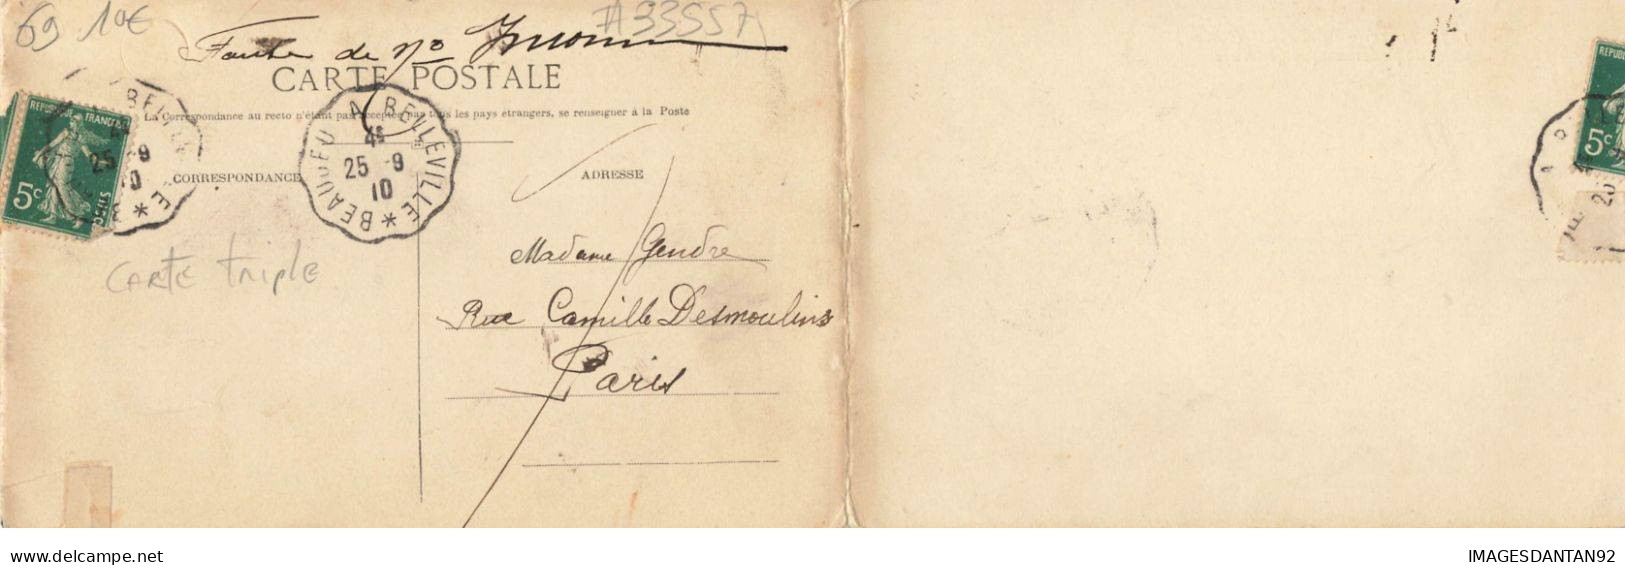 69 10€
#33557
Faute de No Inconnu
CARTE POSTALE
La Correspondance au recto n'étant pas acceptée par tous les pays étrangers, se renseigner à la Poste
REPUBLIQUE FRANÇAISE
5c
POSTES
25 -9
10
BEAUJEU A BELLEVILLE *
4E
25 -9
10
CORRESPONDANCE
ADRESSE
CARTE triple
Madame Gendre
Rue Camille Desmoulins
Paris
REPUBL
5c
25
IMAGESDANTAN92